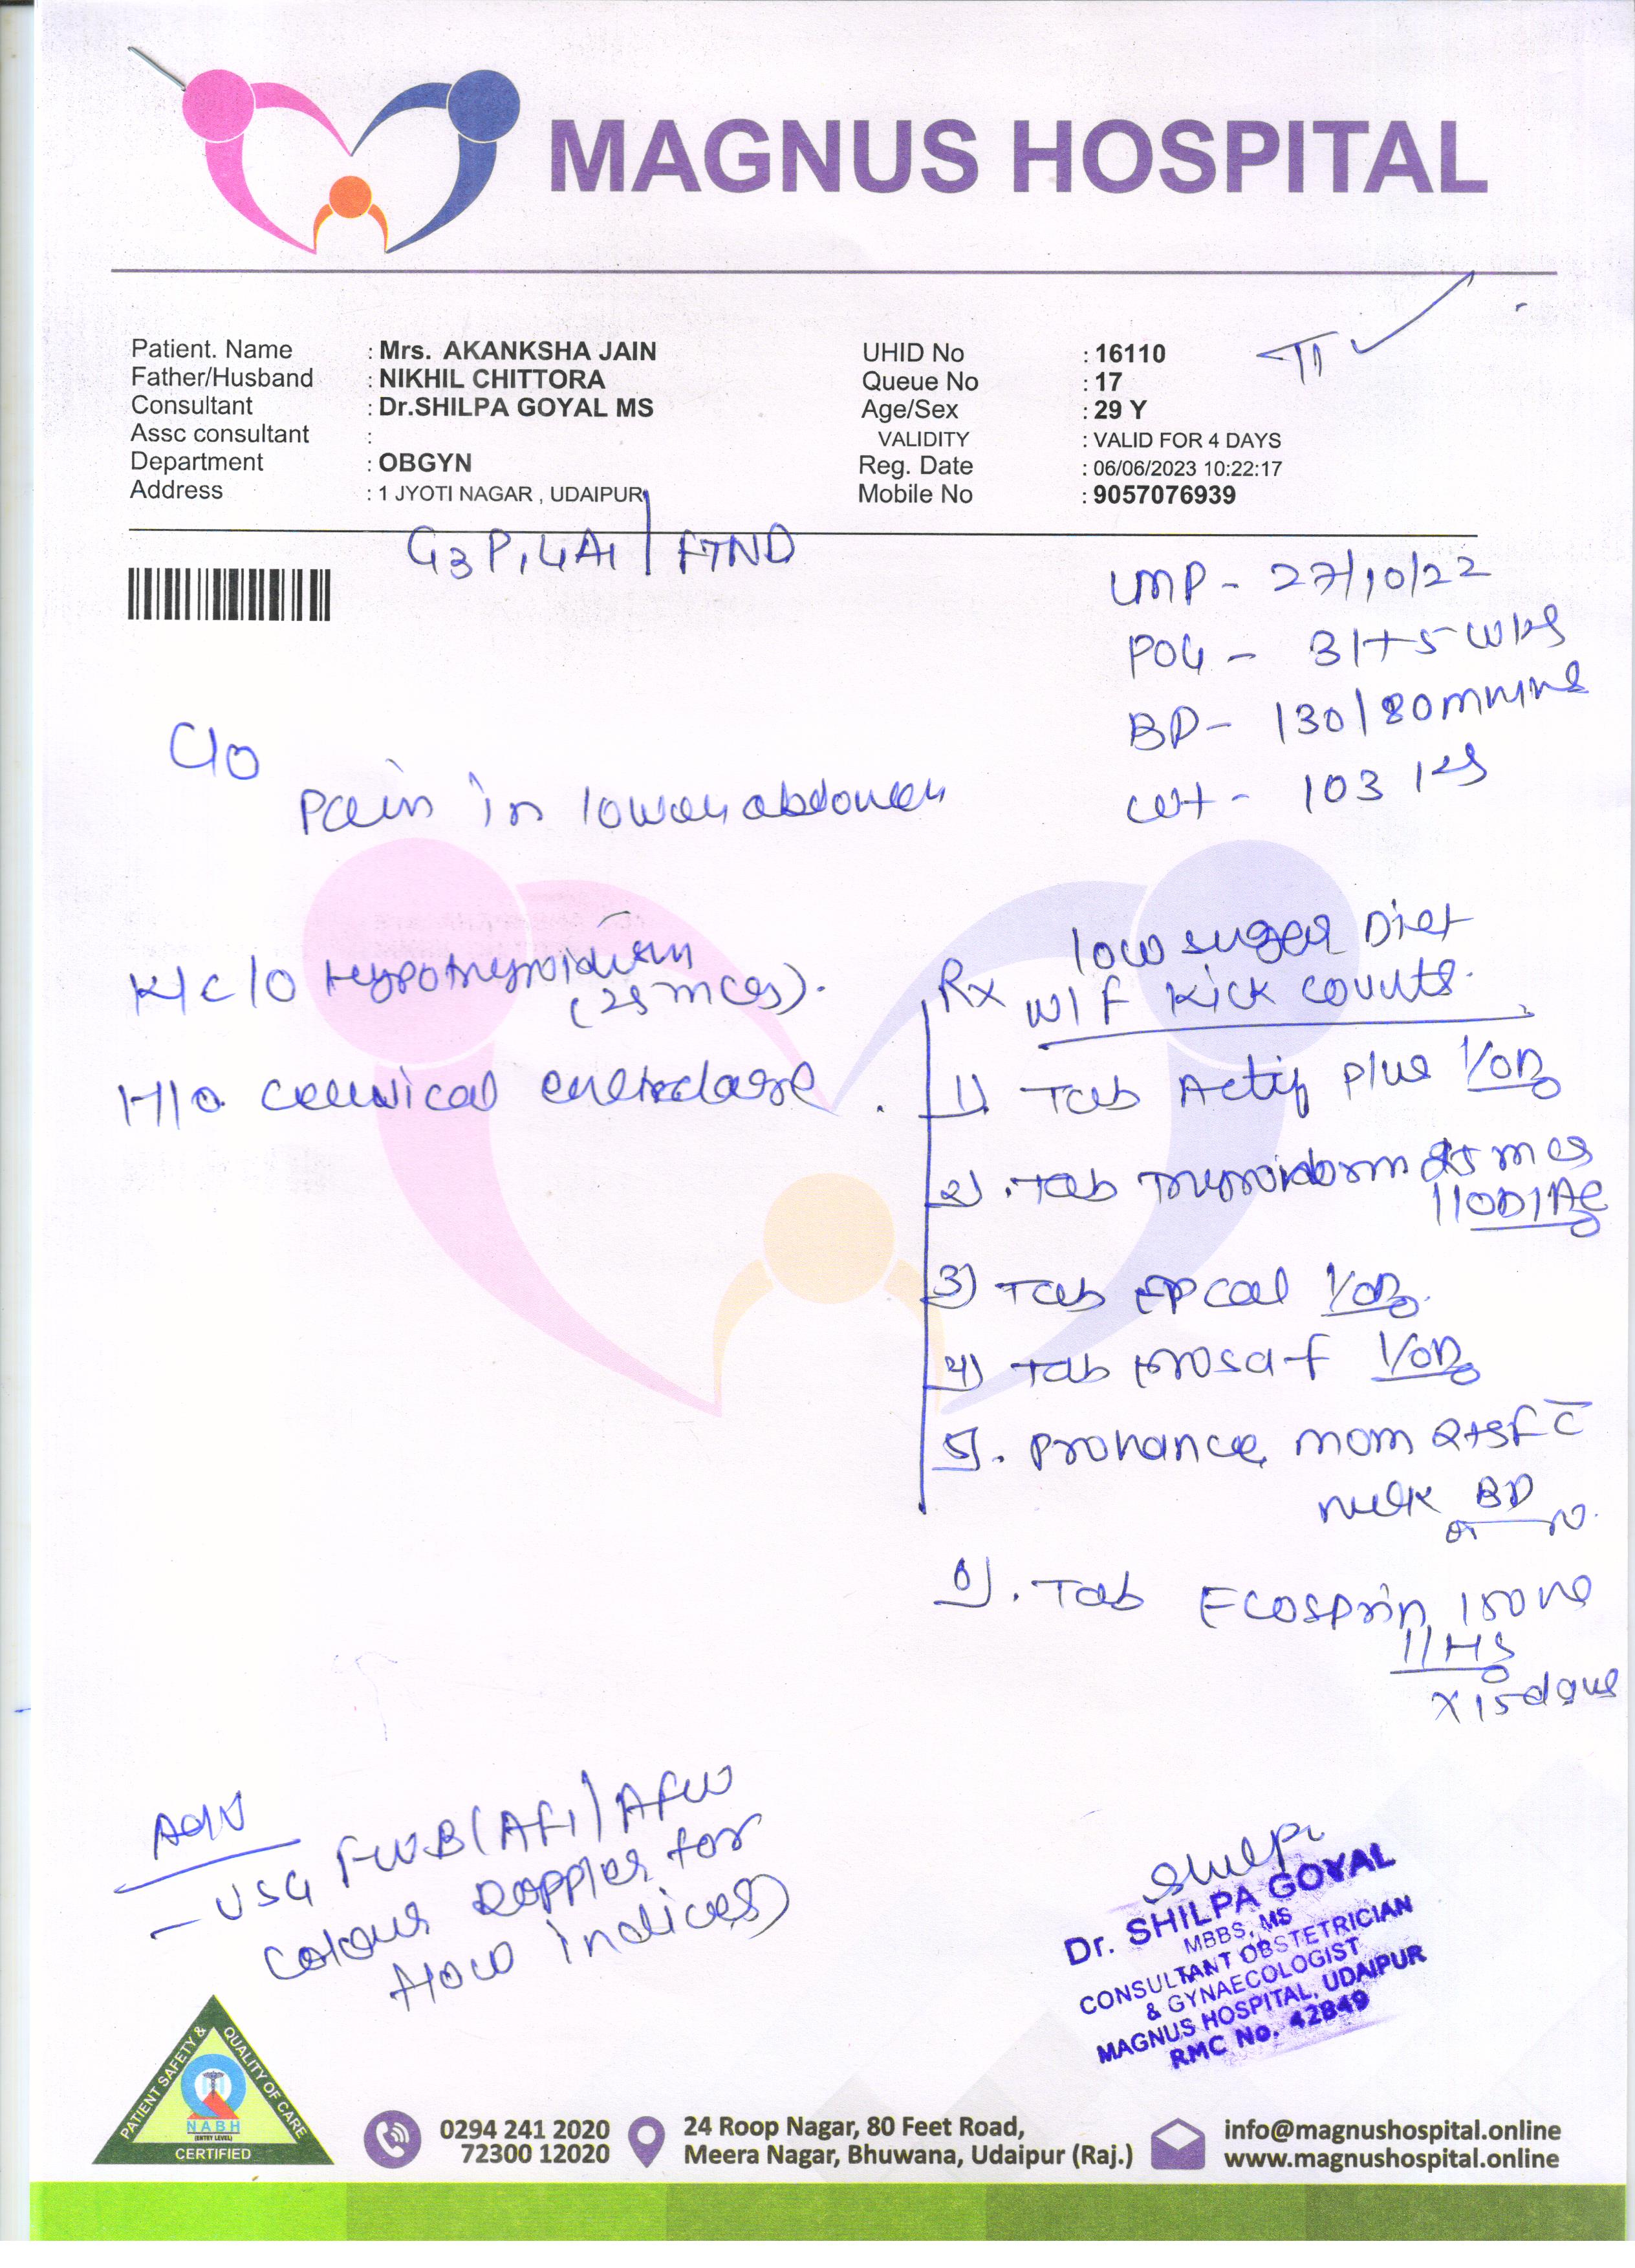 MAGNUS HOSPITAL
Patient. Name : Mrs. AKANKSHA JAIN
Father/Husband : NIKHIL CHITTORA
Consultant : Dr.SHILPA GOYAL MS
Assc consultant :
Department : OBGYN
Address : 1 JYOTI NAGAR , UDAIPUR
UHID No : 16110
Queue No : 17
Age/Sex : 29 Y
VALIDITY : VALID FOR 4 DAYS
Reg. Date : 06/06/2023 10:22:17
Mobile No : 9057076939
G3P1L1A1 / FTND
LMP - 27/10/22
POG - 31+5 wks
BP - 130/80 mmHg
wt - 103 kg
C/o
Pain in lower abdomen
K/c/o Hypothyroidism
(25 mcg).
H/o cervical encerclage
Rx low sugar Diet
W/F Kick counts.
1) Tab Actif plus 1/OD
2) Tab Thyronorm 25 mcg
1/OD/AC
3) Tab cal 1/OD
4) Tab f 1/OD
5). Prohance mom 2tsf c̄
milk BD
6). Tab Ecosprin 150 mg
1/HS
x 15 days
Adv
- USG FWB (AFI / AFW
Colour Doppler for
flow indices)
Shilpi
Dr. SHILPA GOYAL
MBBS, MS
CONSULTANT OBSTETRICIAN
& GYNAECOLOGIST
MAGNUS HOSPITAL, UDAIPUR
RMC No. 42849
PATIENT SAFETY & QUALITY OF CARE
NABH
(ENTRY LEVEL)
CERTIFIED
0294 241 2020
72300 12020
24 Roop Nagar, 80 Feet Road,
Meera Nagar, Bhuwana, Udaipur (Raj.)
info@magnushospital.online
www.magnushospital.online